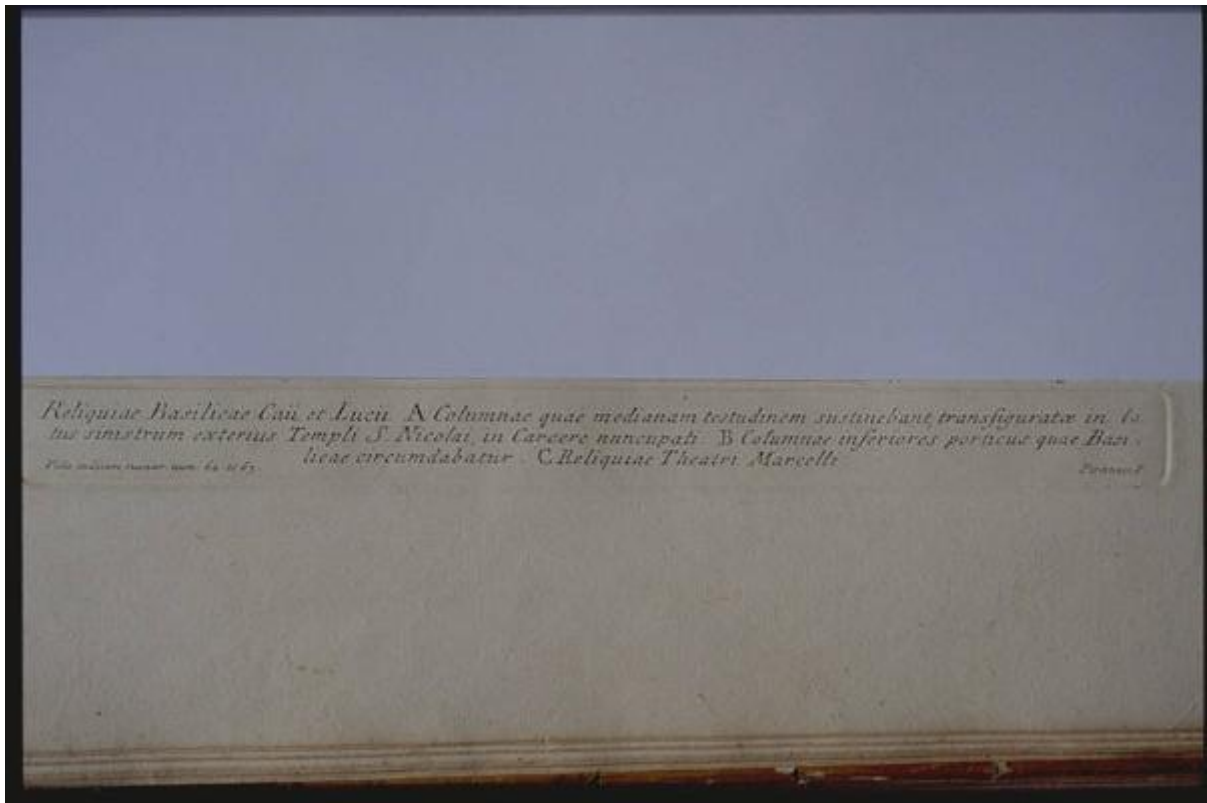 Reliquiae Basilicae Caii et Lucii A Columnae quae medianam testudinem sustinebant, transfiguratæ in la
tus sinistrum exterius Templi S. Nicolai, in Carcere nuncupati B Columnae inferiores porticus quae Basi-
licae circumdabatur. C. Reliquiae Theatri Marcelli
num. 62 et 63